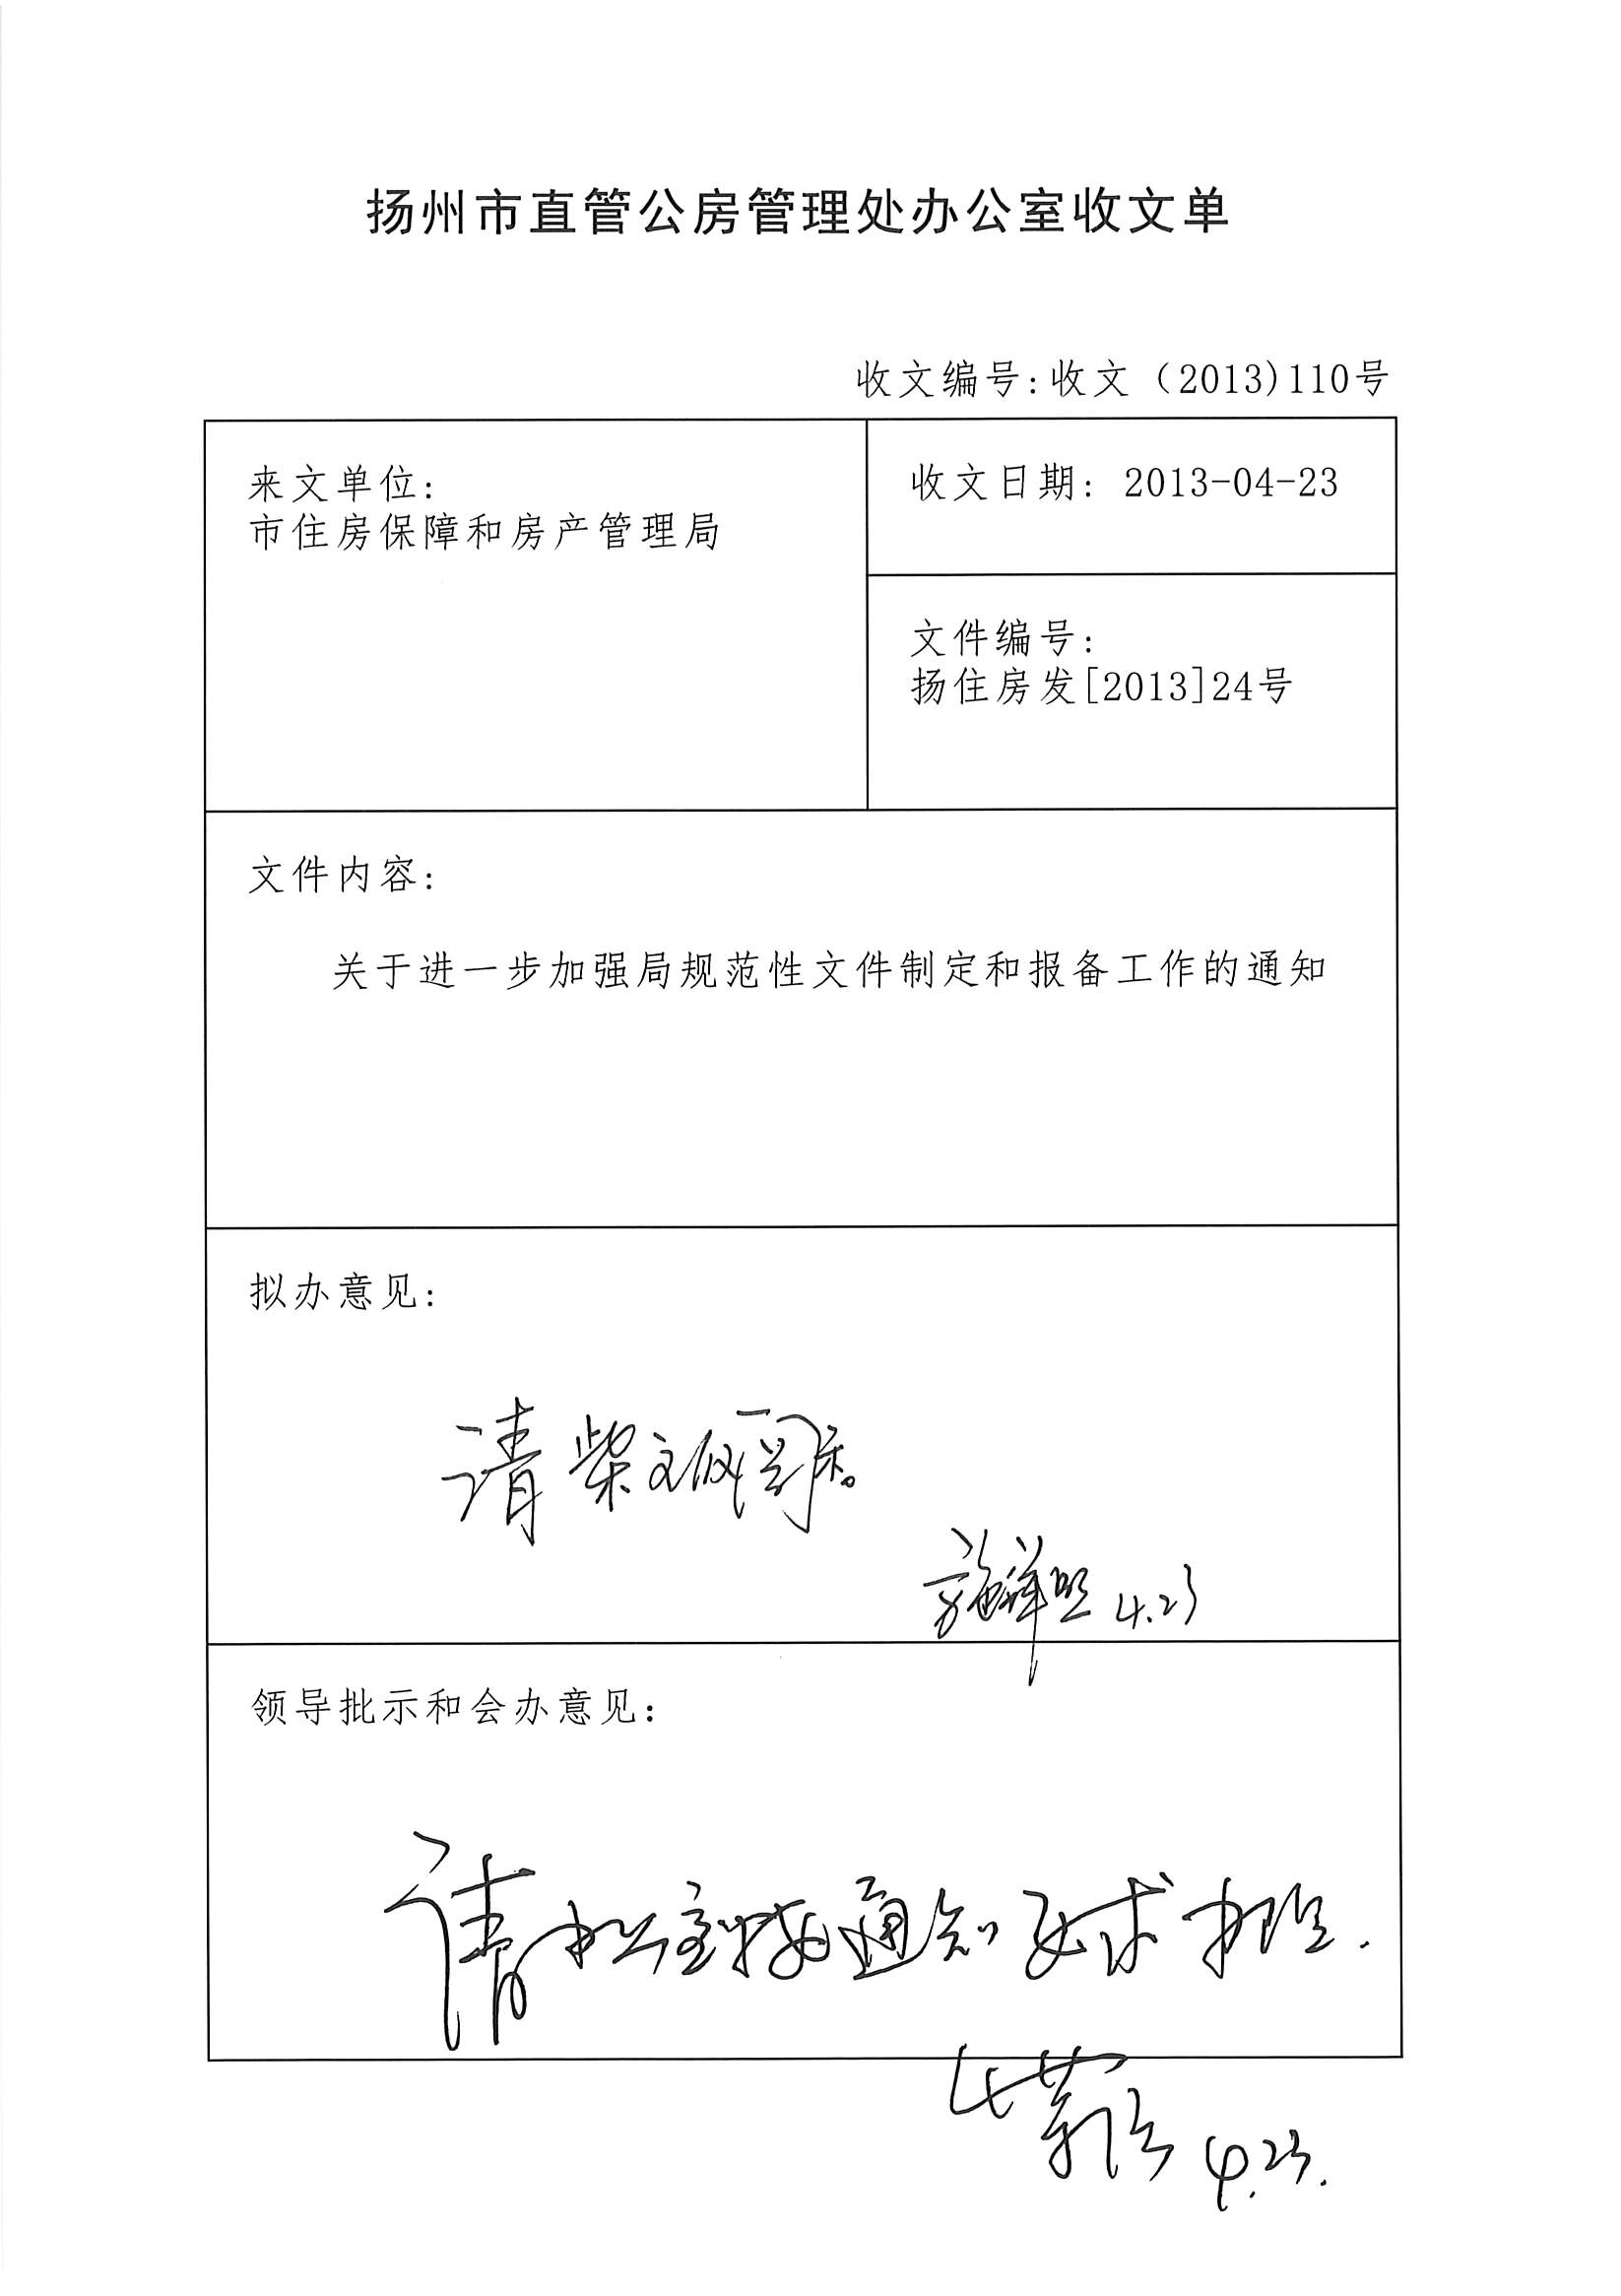 扬州市直管公房管理处办公室收文单
收文编号:收文（2013)110号
来文单位:
市住房保障和房产管理局
收文日期: 2013-04-23
文件编号:
扬住房发[2013]24号
文件内容:
关于进一步加强局规范性文件制定和报备工作的通知
拟办意见:
请柴主阅示。
4.23
领导批示和会办意见:
请办公室按通知要求办理.
4.23.